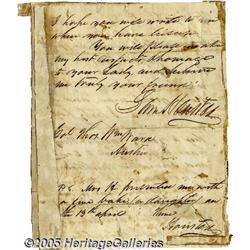 I hope you will write to me
when you have leisure.
You will please make
my best respects, & homage
to your Lady and believe
me truly your friend
Sam Houston
Col Thos Wm Ward
Austin
P.S. Mrs H. presented me with a
fine babe, a daughter on
the 13th april
Houston
©2005 HeritageGalleries